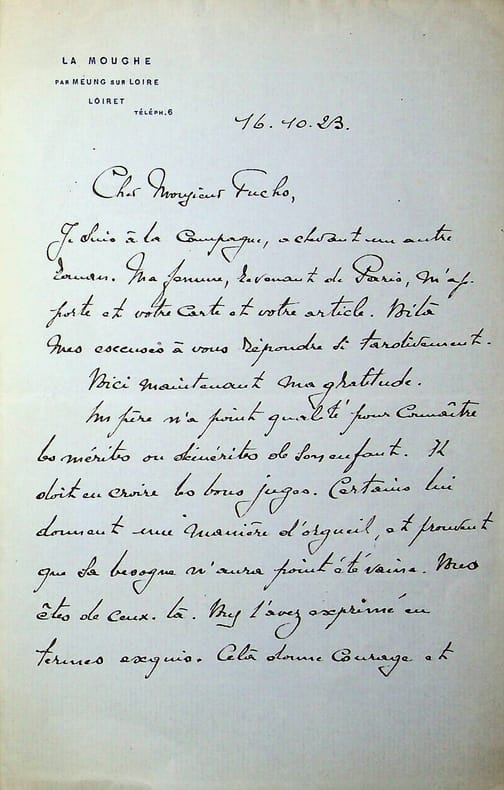 LA MOUCHE
PAR MEUNG SUR LOIRE
LOIRET
TÉLÉPH. 6
16.10.23.
Cher Monsieur Fuchs,
Je suis à la Campagne, achevant un autre
roman. Ma femme, revenant de Paris, m'ap-
porte et votre Carte et votre article. Voilà
mes excuses à vous répondre si tardivement.
Voici maintenant ma gratitude.
Un père n'a point qualité pour Connaître
les mérites ou démérites de son enfant. Il
doit en croire les bons juges. Certains lui
donnent une manière d'orgueil, et prouvent
que sa besogne n'aura point été vaine. Vous
êtes de ceux-là. Vous l'avez exprimé en
termes exquis. Celà donne Courage et